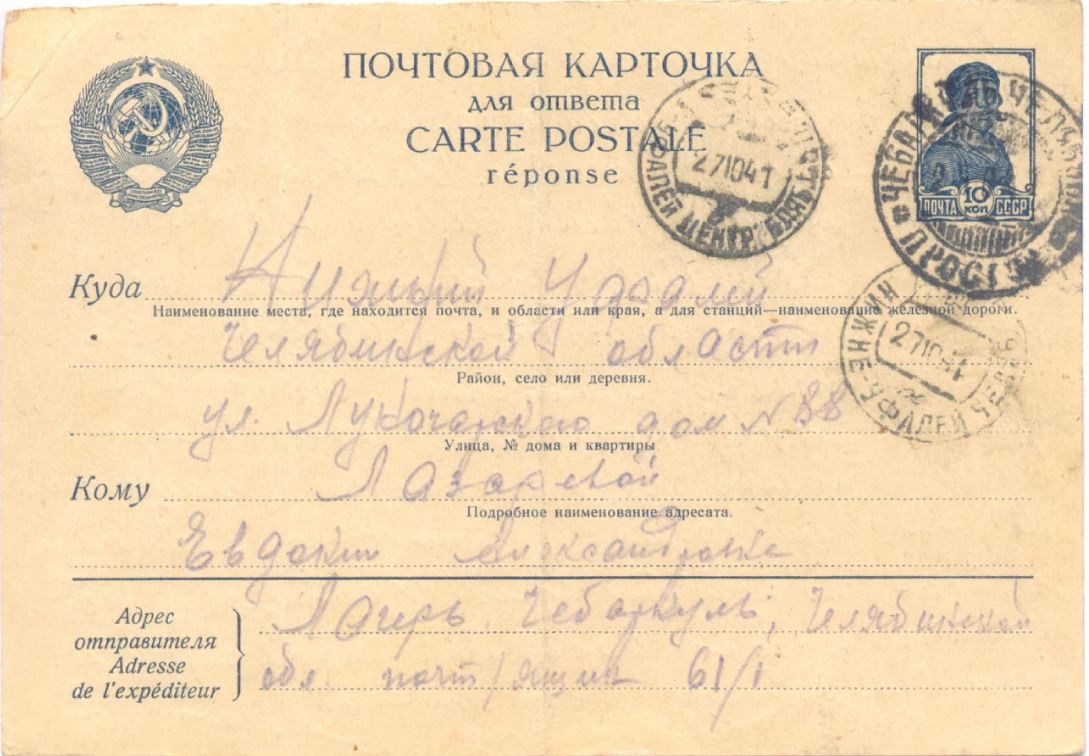 ПОЧТОВАЯ КАРТОЧКА
для ответа
CARTE POSTALE
réponse
ПОЧТА 10 КОП СССР
27 10 41
27 10 41
НИЖНЕ-УФАЛЕЙ
Куда Нижний Уфалей
Наименование места, где находится почта, и области или края, а для станций—наименование железной дороги.
Челябинской области
Район, село или деревня.
ул. дом № 88
Улица, № дома и квартиры
Кому Лазаревой
Подробное наименование адресата.
Евдокии Александровне
Адрес
отправителя
Adresse
de l'expéditeur
Лагерь Чебаркуль, Челябинской
обл. почт/ящик 61/1